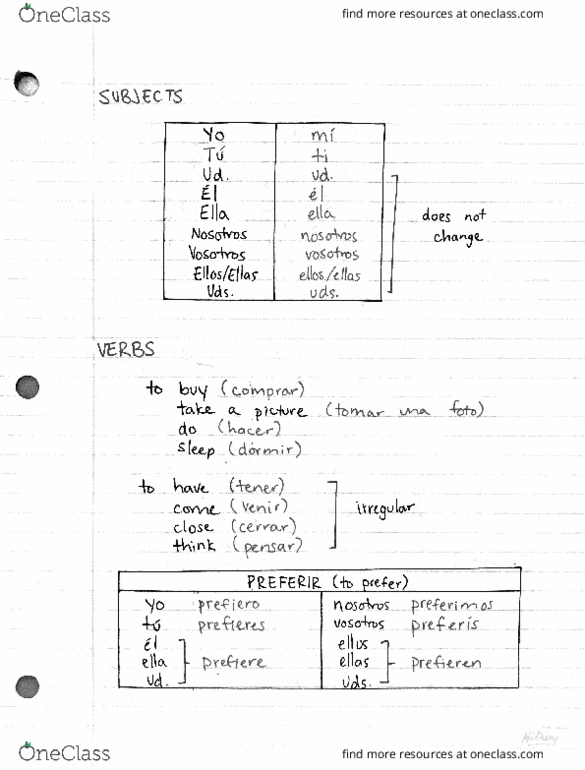 OneClass find more resources at oneclass.com
SUBJECTS
Yo mí
Tú ti
Ud. ud.
Él él
Ella ella
does not
change
Nosotros nosotros
Vosotros vosotros
Ellos/Ellas ellos/ellas
Uds. uds.
VERBS
to buy (comprar)
take a picture (tomar una foto)
do (hacer)
sleep (dormir)
to have (tener)
come (venir)
close (cerrar)
think (pensar)
irregular
PREFERIR (to prefer)
yo prefiero nosotros preferimos
tú prefieres vosotros preferís
él ellos
ella prefiere ellas prefieren
ud. uds.
Hilary
OneClass find more resources at oneclass.com